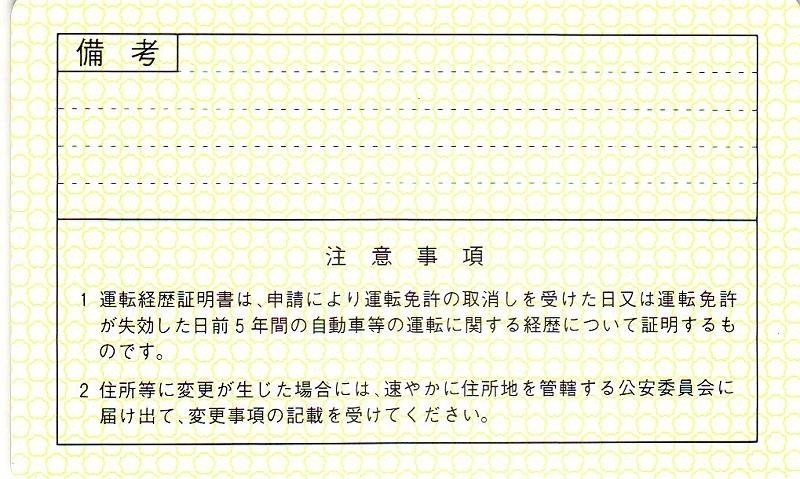 備考
注意事項
1 運転経歴証明書は、申請により運転免許の取消しを受けた日又は運転免許
が失効した日前5年間の自動車等の運転に関する経歴について証明するも
のです。
2 住所等に変更が生じた場合には、速やかに住所地を管轄する公安委員会に
届け出て、変更事項の記載を受けてください。